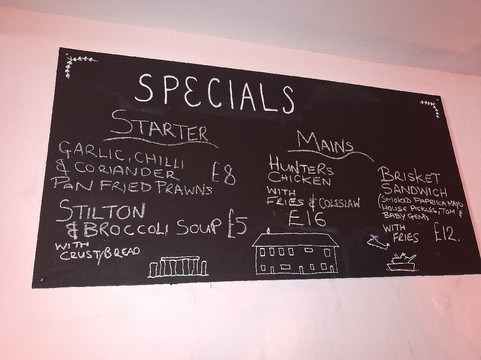 SPECIALS
STARTER
GARLIC, CHILLI
& CORIANDER £8
PAN FRIED PRAWNS
STILTON
& BROCCOLI SOUP £5
WITH
CRUSTY BREAD
MAINS
HUNTERS
CHICKEN
WITH
FRIES & COLESLAW
£16
BRISKET
SANDWICH
(SMOKED PAPRIKA MAYO
HOUSE PICKLES, TOM &
BABY GEM)
WITH
FRIES £12.